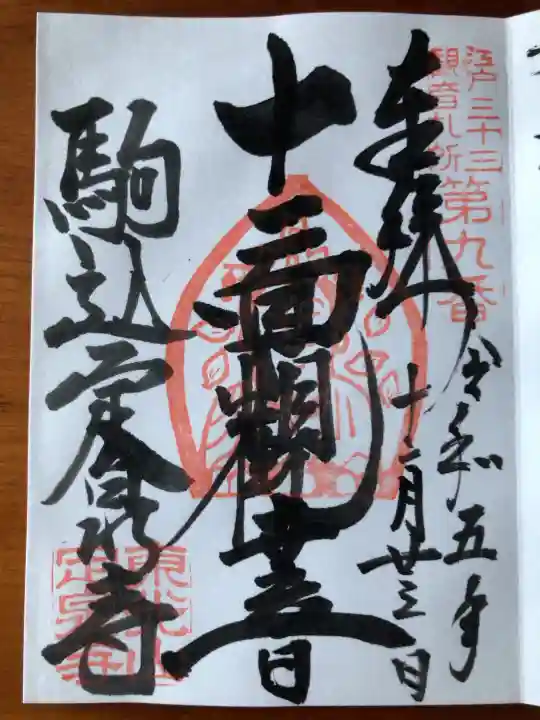 江戸三十三
観音札所
第九番
奉拝
令和五年
十二月廿三日
十一面観世音
駒込定泉寺
東光山
定泉寺